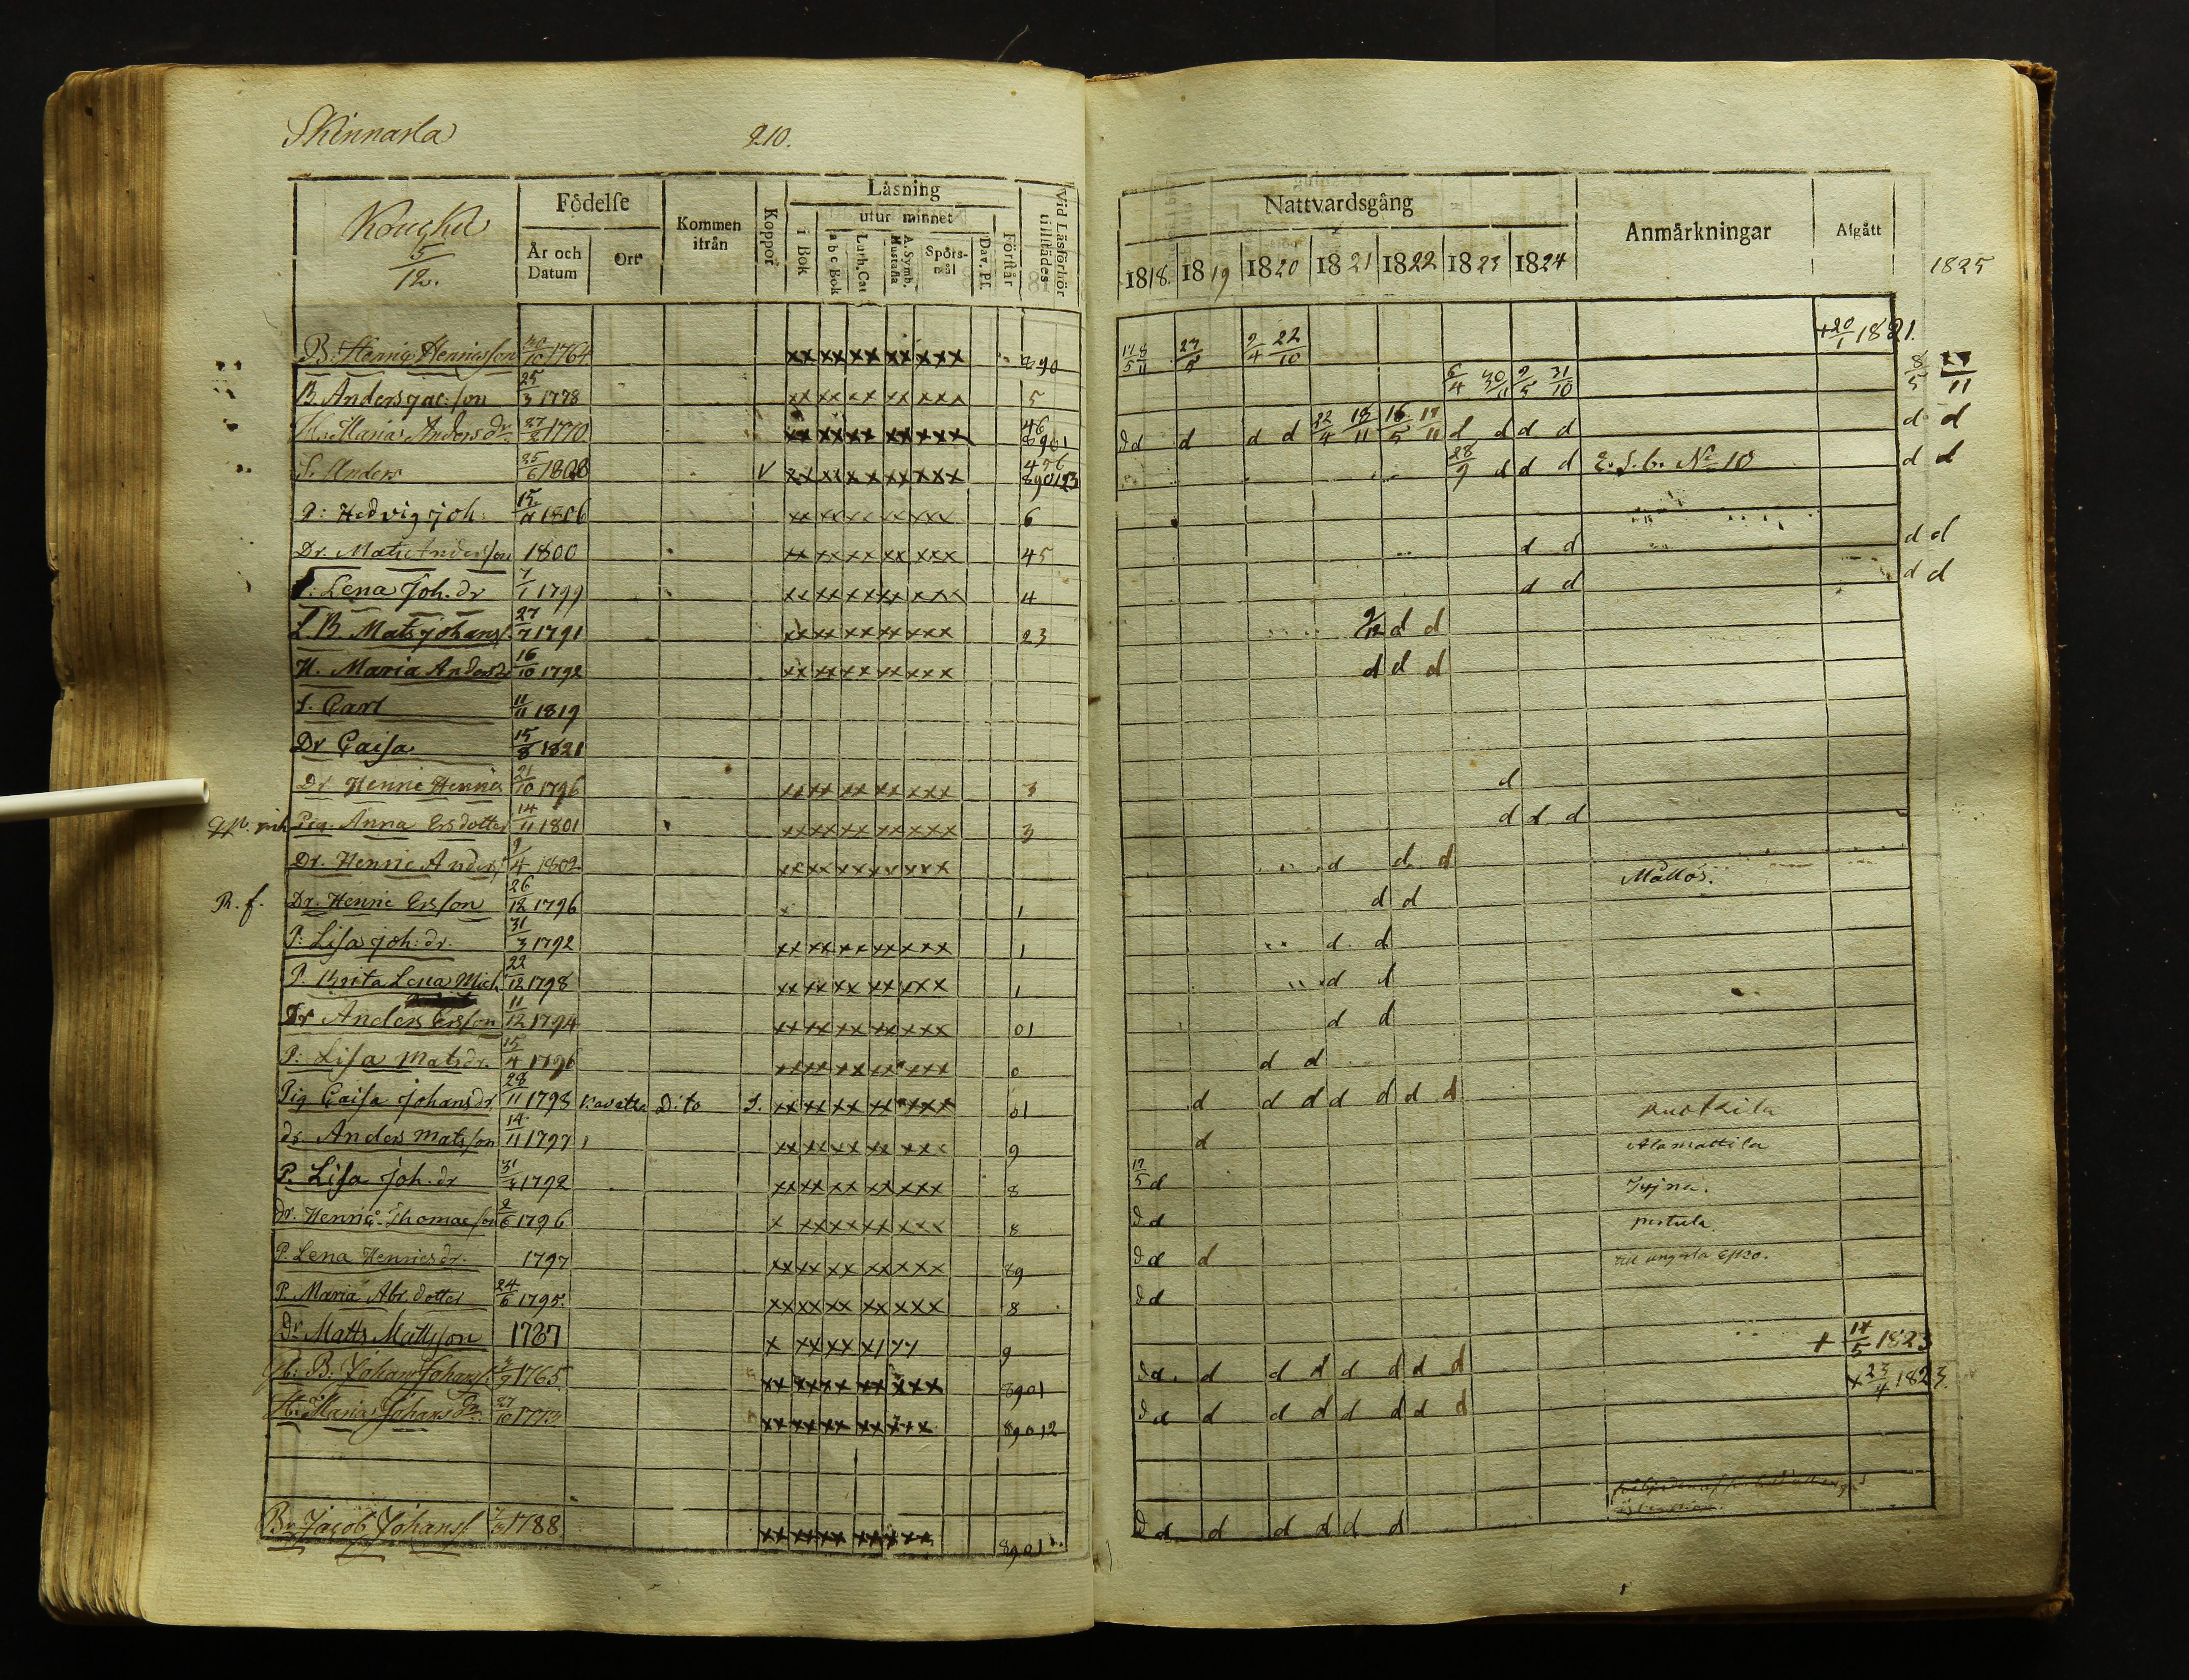 Skinnarla 210.
Koucku
5/12.
Födelse
År och Datum
Ort
Kommen ifrån
Koppor
Läsning
i Bok
utur minnet
a b c Bok
Luth. Cat
A. Symb. Hustafla
Spörs-mål
Dav. Ps.
Förstår
Vid Läsförhör tillstädes
Nattvardsgång
1818. 1819 1820 1821 1822 1823 1824
Anmärkningar
Afgått
1825
B. Henric Henricsson 30/10 1764 xx xx xx xx xxx 890 23/5 2/4 22/10 + 20/1 1821.
B. Anders Jac:son 25/3 1778 xx xx xx xx xxx 5 6/4 30/11 2/5 31/10 8/5 /11
H. Maria Andersdr. 27/2 1770 xx xx xx xx xxx 46 8901 dd d d d 22/4 18/11 16/5 17/11 d d d d d d
S. Anders 25/6 1808 V xx xx xx xx xxx 456 890123 28/9 d d d E. S. b. No 10 d d
P: Hedvig Joh: 15/11 1806 xx xx xx xx xxx 6
Dr. Mats Andersson 1800 xx xx xx xx xxx 45 d d d d
P. Lena Joh. dr 7/1 1799 xx xx xx xx xxx 4 d d d d
L. B. Mats Johanss. 27/7 1791 xx xx xx xx xxx 23 9/12 d d
H. Maria Andersdr 16/10 1792 xx xx xx xx xxx d d d
S. Carl 11/11 1819
Dr Caisa 15/8 1821
Dr Henric Henrics 21/10 1796 xx xx xx xx xxx 3 d
Pig. Anna Ersdotter 14/11 1801 xx xx xx xx xxx 3 d d d
Dr. Henric Anders 9/4 1802 xx xx xx xx xxx d d d Mattos.
R. f. Dr. Henric Ersson 26/12 1796 x 1 d d
P: Lisa Joh: dr. 31/3 1792 xx xx xx xx xxx 1 d d
P. Brita Lena Mich 22/12 1798 xx xx xx xx xxx 1 d d
Dr Anders Ersson 11/12 1794 xx xx xx xx xxx 01 d d
P: Lisa Matsdr. 15/4 1796 xx xx xx xx xxx 0 d d
Pig Caisa Johansdr. 28/11 1798 Dito S. xx xx xx xx xxx 01 d d d d d d d
dr. Anders Matsson 14/11 1797 xx xx xx xx xxx 9 d Alamattila
P. Lisa Joh. dr 31/3 1792 xx xx xx xx xxx 8 17/5 d
dr. Henric Thomasson 2/6 1796 x xx xx xx xxx 8 d d
P. Lena Henricsdr. 1797 xx xx xx xx xxx 89 d d d
P. Maria Abr. dotter 24/6 1795. xx xx xx xx xxx 8 d d
Dr. Matts Mattsson 1787 9 + 14/5 1823
B: Johan Johanss. 1765 xx xx xx xx xxx 8901 d d. d d d d d d d x 23/4 1823.
H. Maria Johansdr. 27/10 1773 xx xx xx xx xxx 89012 d d d d d d d d d
Br. Jacob Johanss. 1788 xx xx xx xx xxx 8901 d d d d d d d